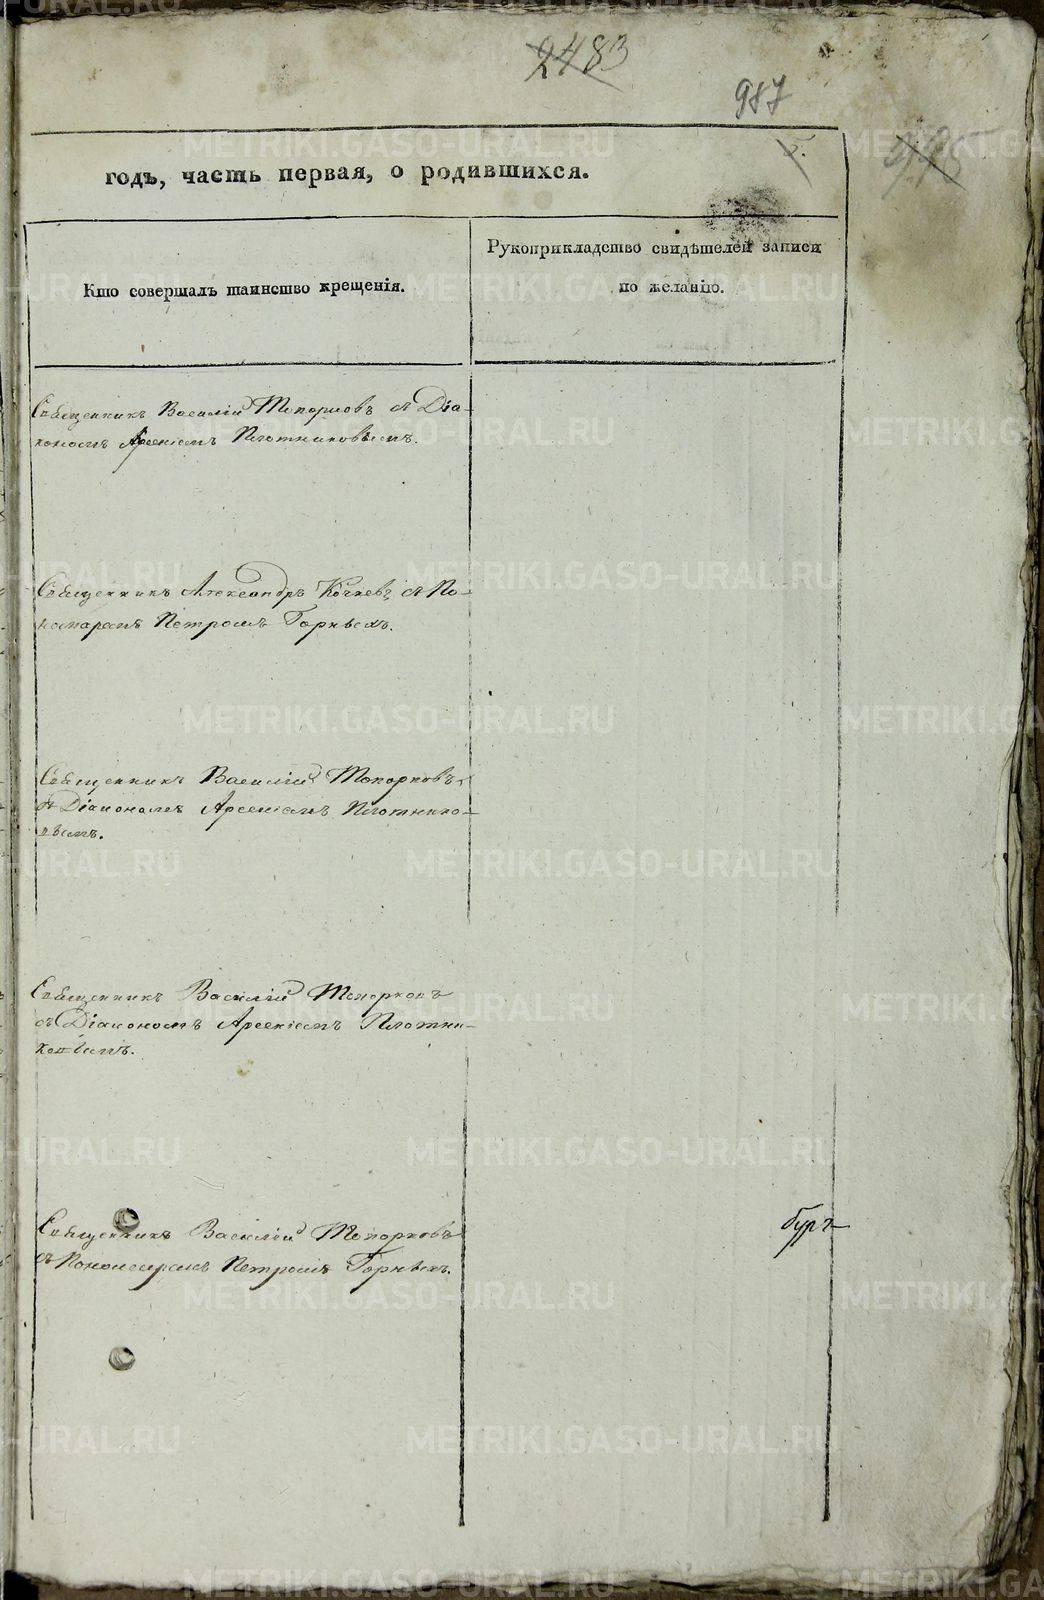 2483
987
годъ, часть первая, о родившихся.
Кто совершалъ таинство крещенія.
Рукоприкладство свидѣтелей записи
по желанію.
Священникъ Василій Топорковъ съ Діа-
кономъ Арсеніемъ Плотниковымъ.
Священникъ Александръ съ По-
номаремъ Петромъ Горныхъ.
Священникъ Василій Топорковъ
съ Діакономъ Арсеніемъ Плотнико-
вымъ.
Священникъ Василій Топорковъ
съ Діакономъ Арсеніемъ Плотни-
ковымъ.
Священникъ Василій Топорковъ
съ Пономаремъ Петромъ Горныхъ.
METRIKI.GASO-URAL.RU